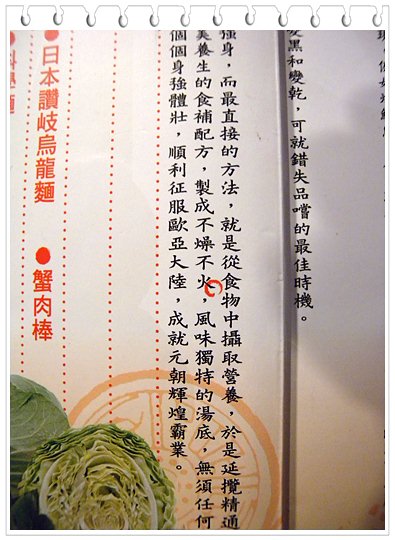 黑和變乾，可就錯失品嚐的最佳時機。
強身，而最直接的方法，就是從食物中攝取營養，於是延攬精通
養生的食補配方，製成不燥不火，風味獨特的湯底，無須任何
個個身強體壯，順利征服歐亞大陸，成就元朝輝煌霸業。
●日本讚岐烏龍麵 ●蟹肉棒
●科學麵